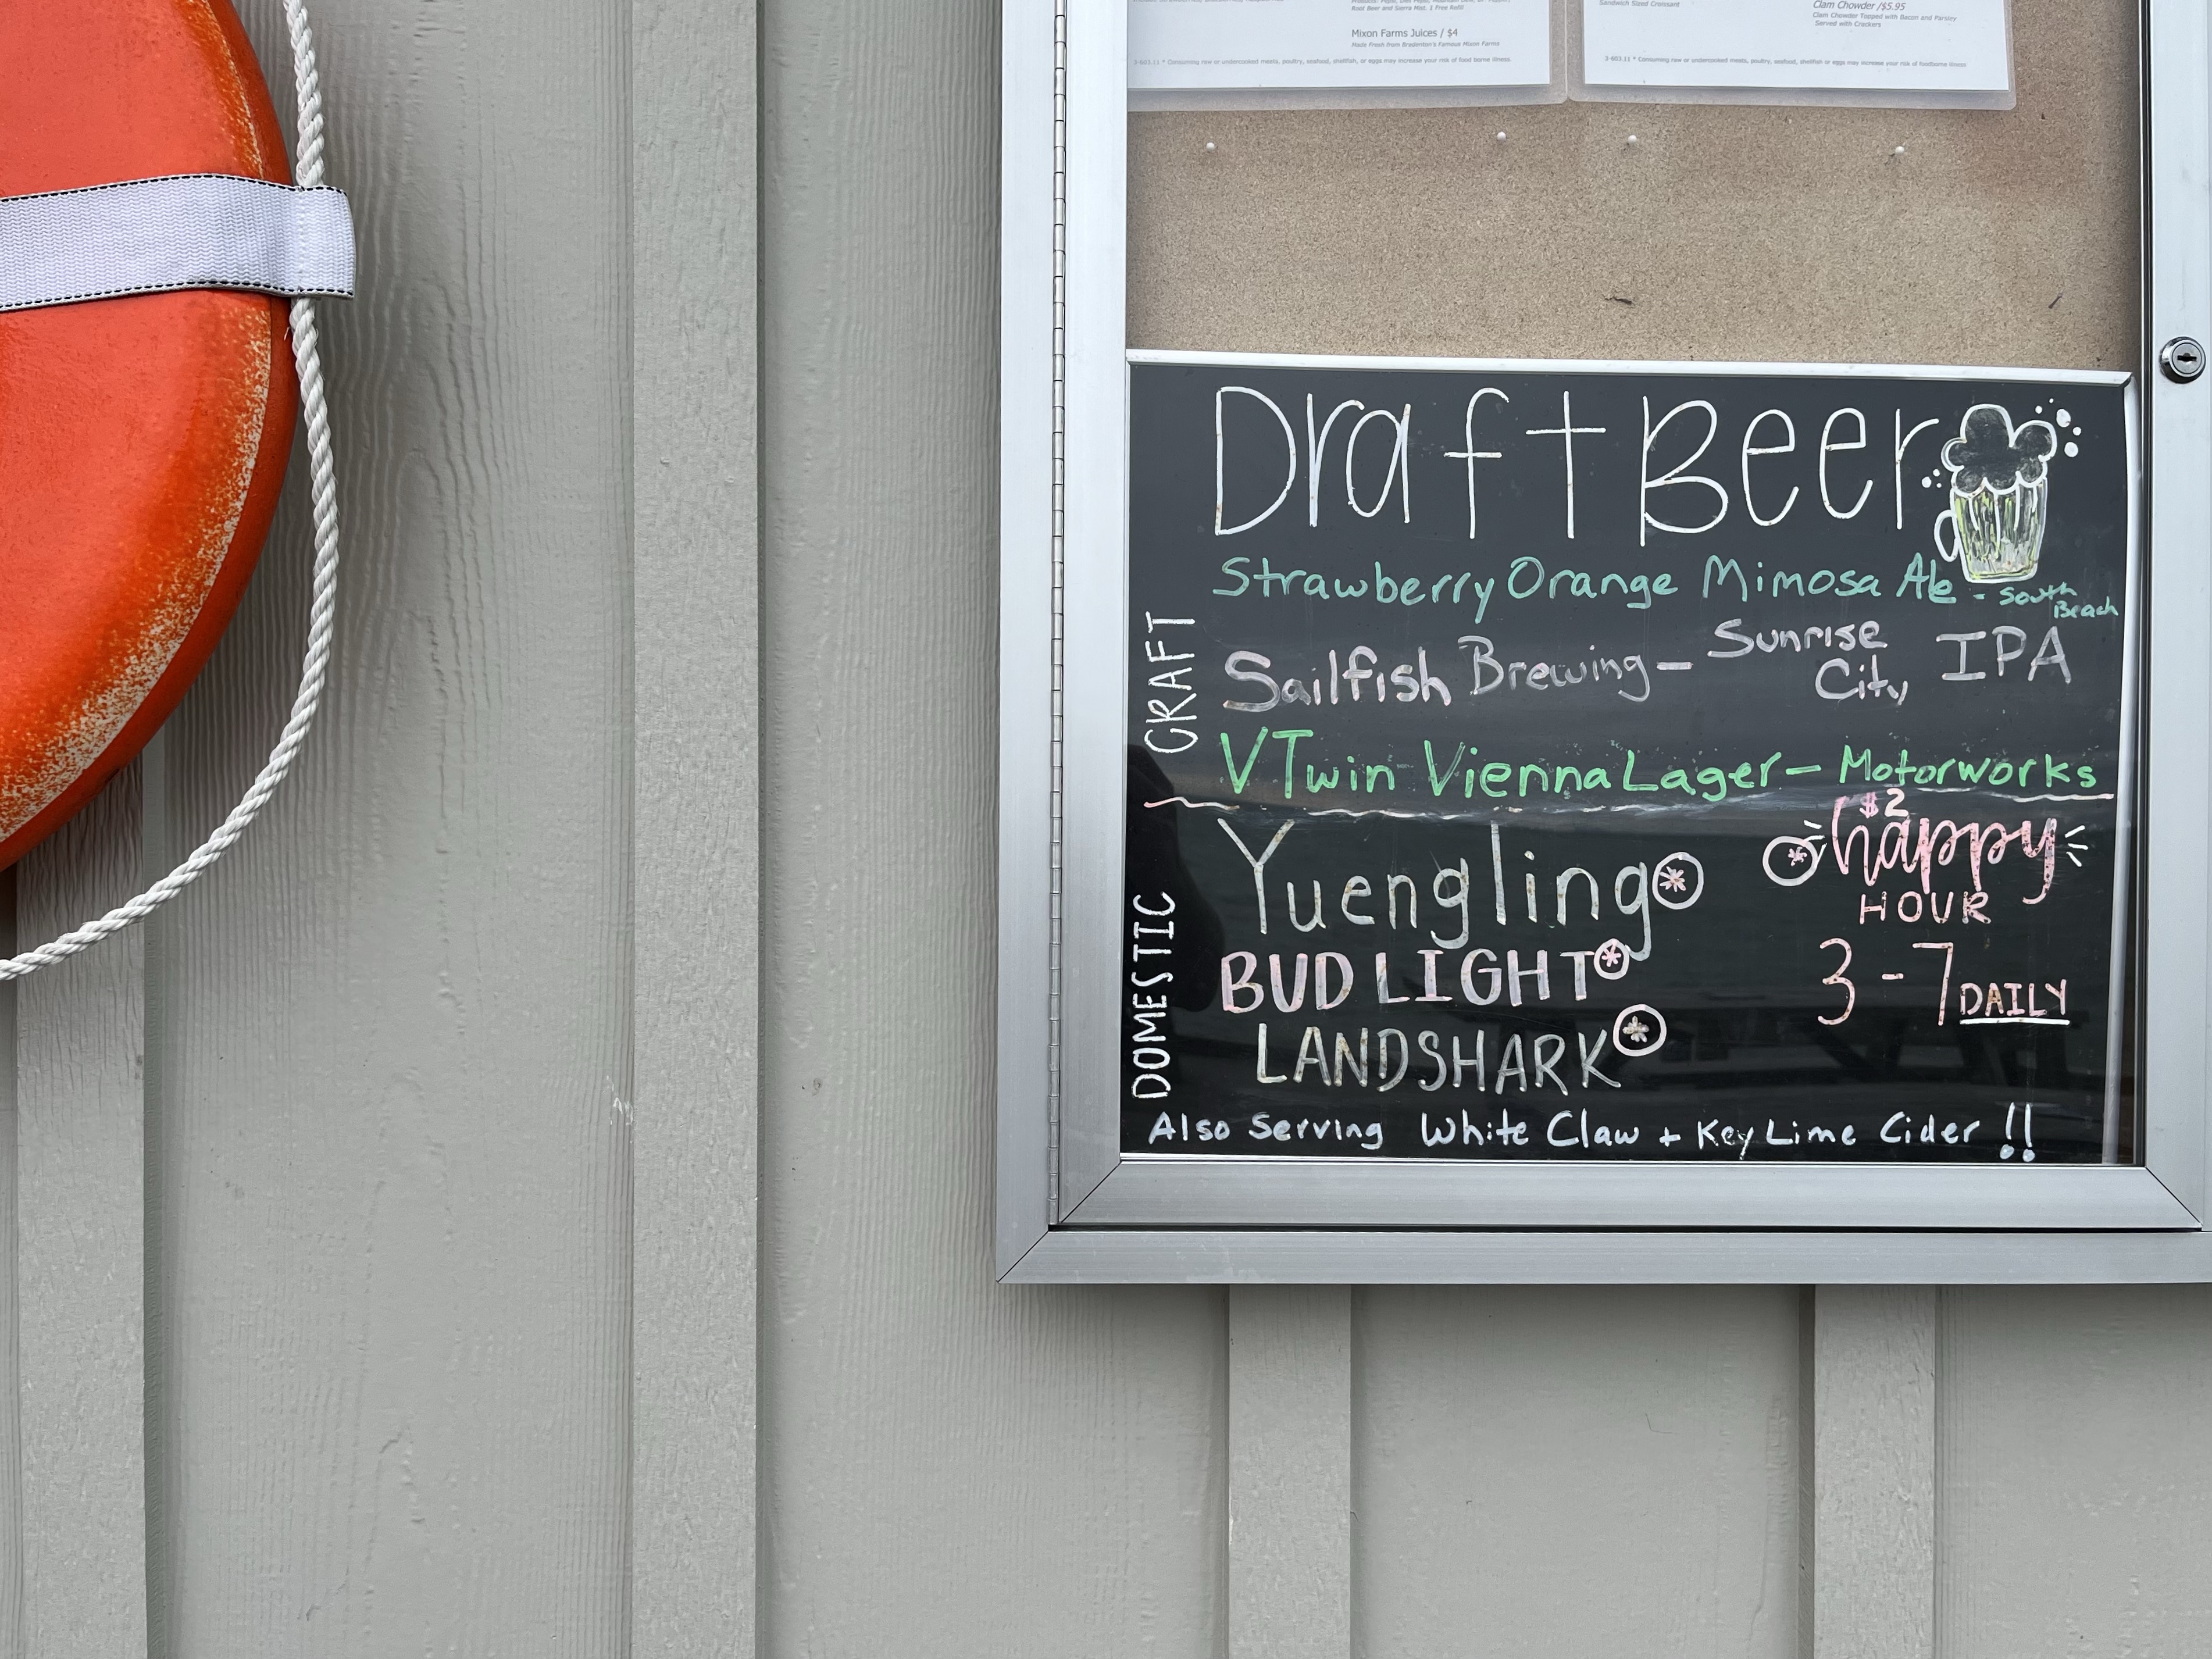 Root Beer and Sierra Mist. 1 Free Refill
Mixon Farms Juices / $4
Made Fresh from Bradenton's Famous Mixon Farms
3-603.11 * Consuming raw or undercooked meats, poultry, seafood, shellfish, or eggs may increase your risk of food borne illness.
Sandwich Sized Croissant
Clam Chowder /$5.95
Clam Chowder Topped with Bacon and Parsley
Served with Crackers
3-603.11 * Consuming raw or undercooked meats, poultry, seafood, shellfish or eggs may increase your risk of foodborne illness
Draft Beer
CRAFT
Strawberry Orange Mimosa Ale - South Beach
Sailfish Brewing - Sunrise City IPA
V Twin Vienna Lager - Motorworks
DOMESTIC
Yuengling *
BUD LIGHT *
LANDSHARK *
* $2 happy
HOUR
3-7 DAILY
Also Serving White Claw + Key Lime Cider !!